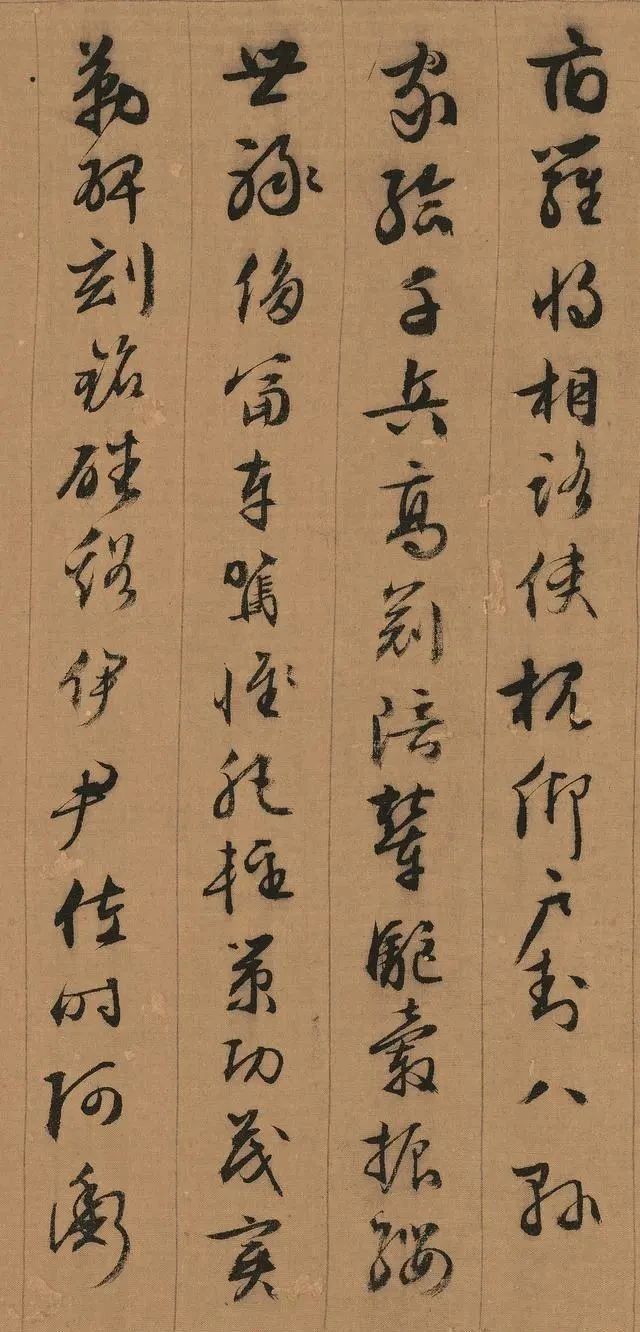 府羅將相路俠槐卿戶封八縣
家給千兵高冠陪輦驅轂振纓
世祿侈富車駕惟肥輕策功茂實
勒碑刻銘磻谿伊尹佐時阿衡